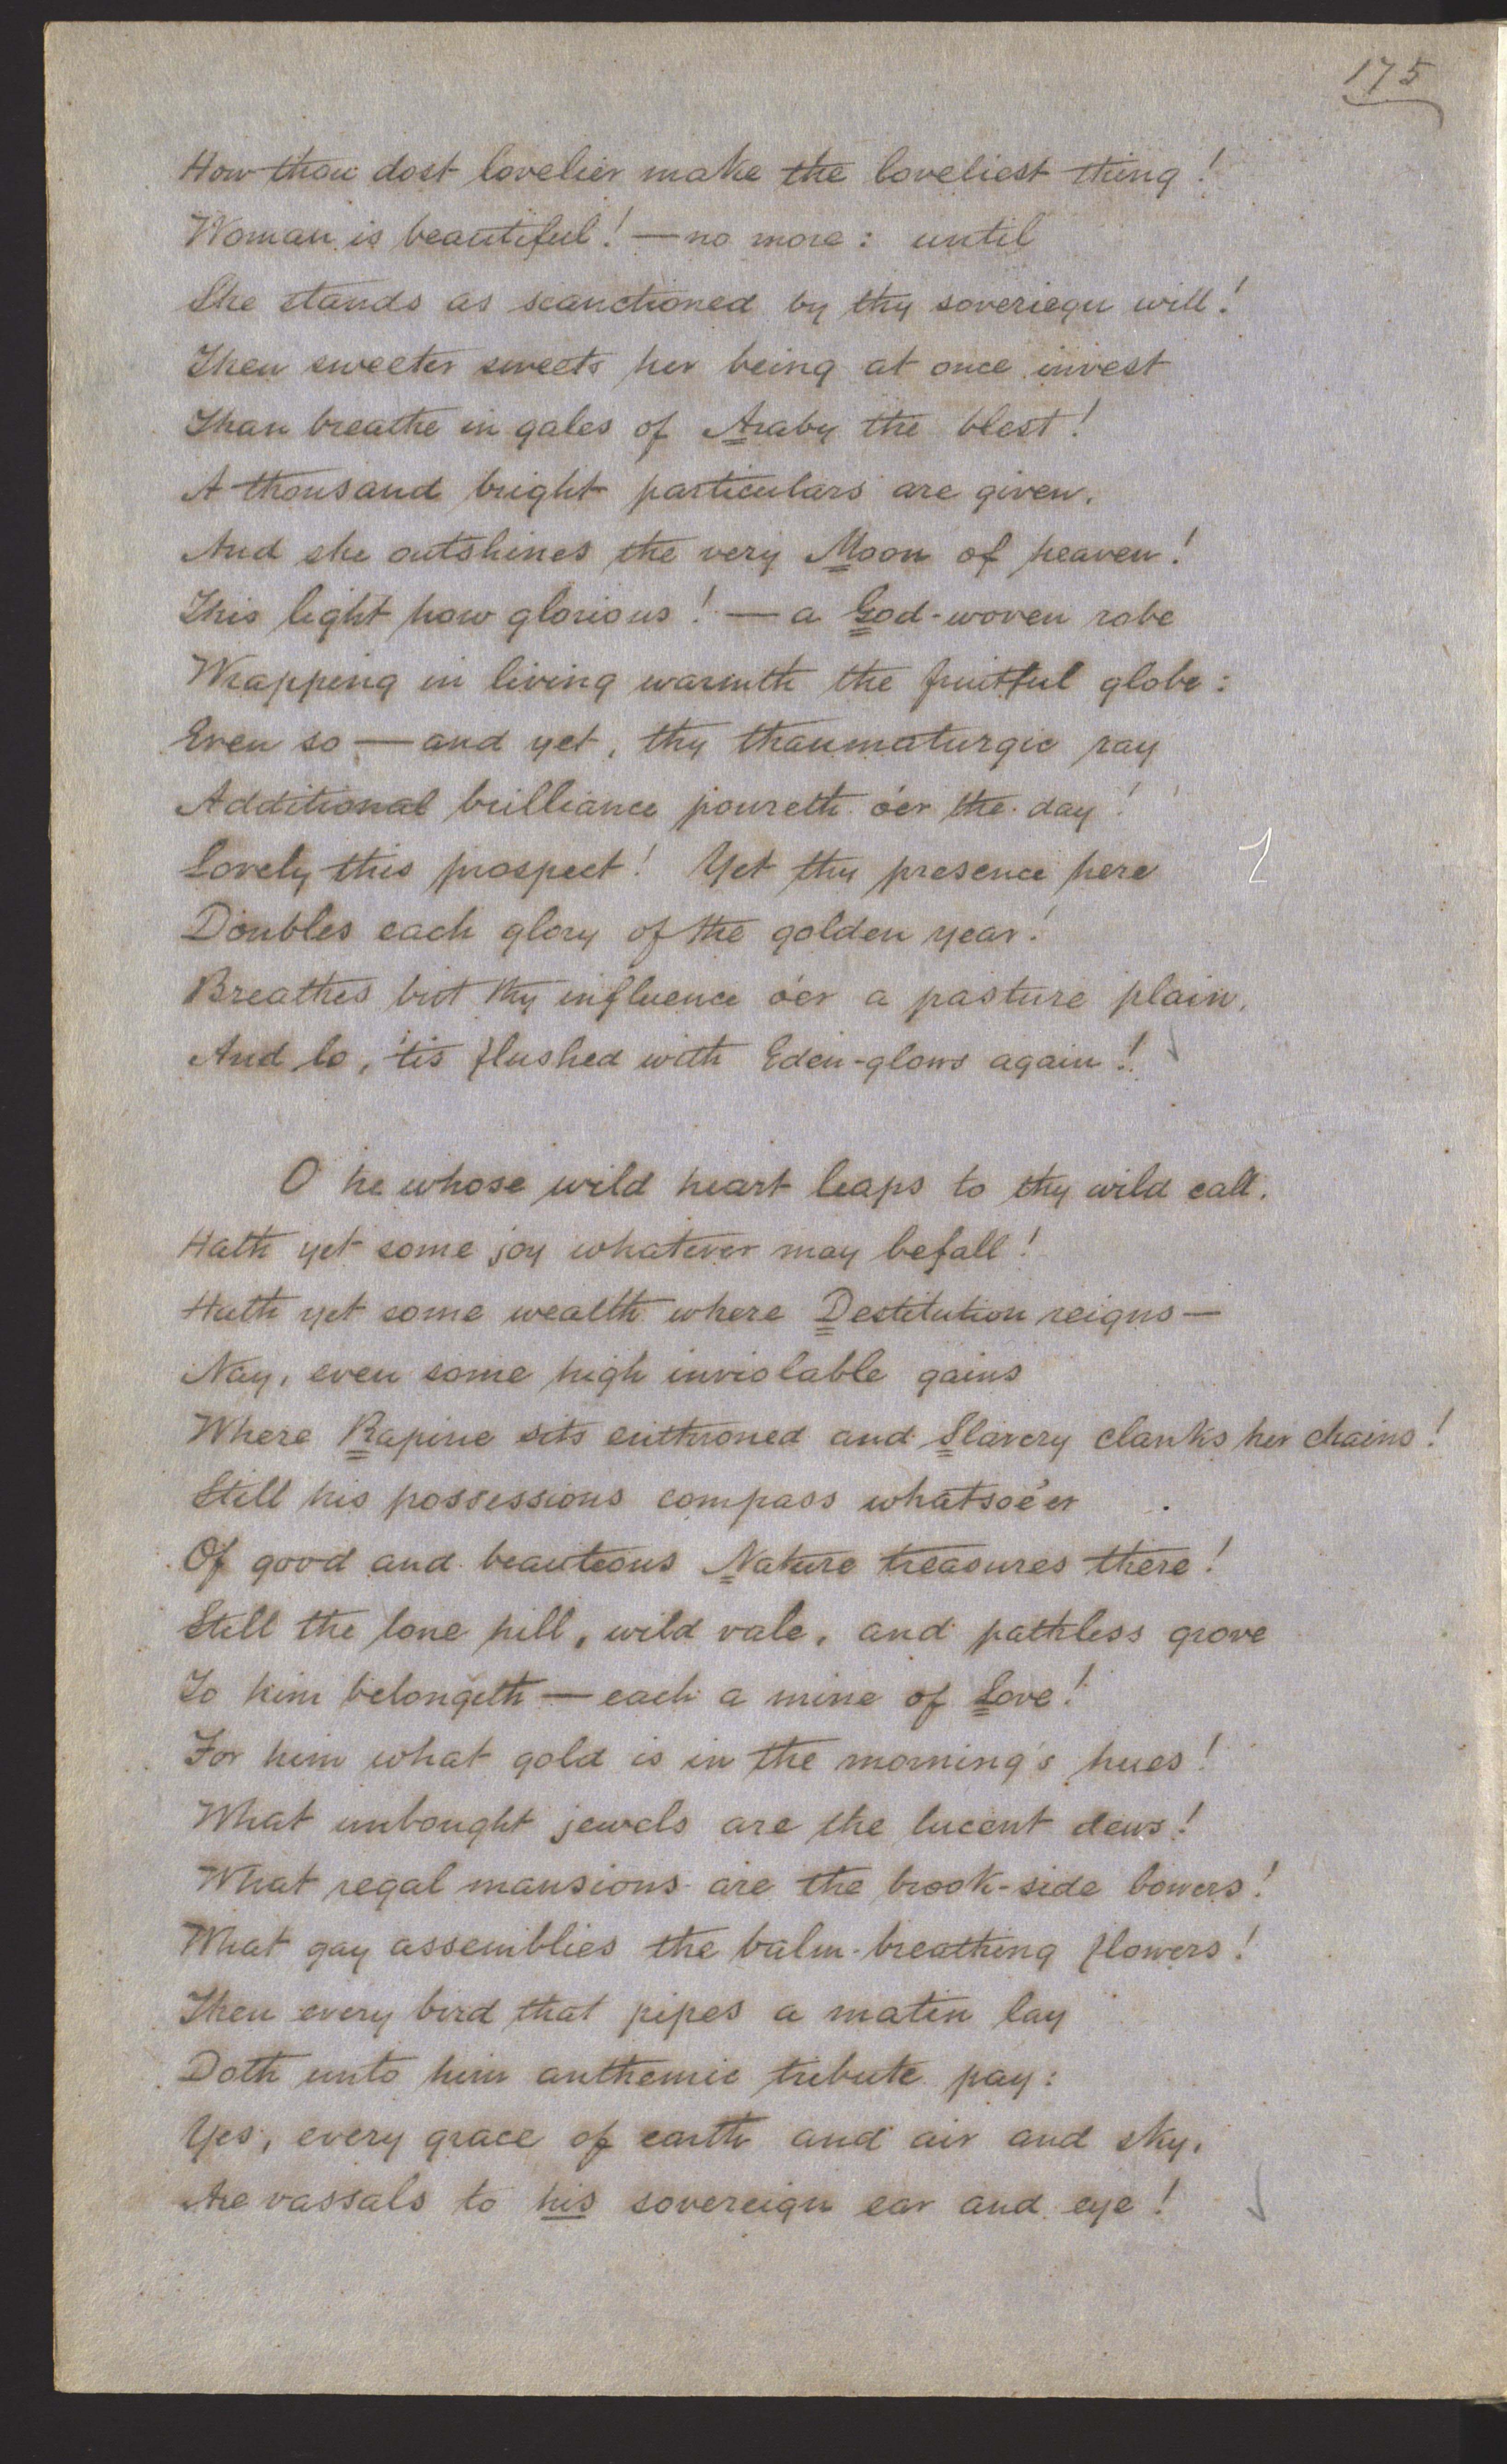 175
How thou dost lovelier make the loveliest thing!
Woman is beautiful! — no more: until
She stands as scanctioned by thy soveriegn will!
Then sweeter sweets her being at once invest
Than breathe in gales of Araby the blest!
A thousand bright particulars are given,
And she outshines the very Moon of heaven!
This light how glorious! — a God-woven robe
Wrapping in living warmth the fruitful globe:
Even so — and yet, thy thaumaturgic ray
Additional brilliance poureth o'er the day!
Lovely this prospect! Yet thy presence here
Doubles each glory of the golden year!
Breathes but thy influence o'er a pasture plain,
And lo, 'tis flushed with Eden-glows again!
O he whose wild heart leaps to thy wild call,
Hath yet some joy whatever may befall!
Hath yet some wealth where Destitution reigns —
Nay, even some high inviolable gains
Where Rapine sits enthroned and Slavery clanks her chains!
Still his possessions compass whatsoe'er
Of good and beauteous Nature treasures there!
Still the lone hill, wild vale, and pathless grove
To him belongeth — each a mine of Love!
For him what gold is in the morning's hues!
What unbought jewels are the lucent dews!
What regal mansions are the brook-side bowers!
What gay assemblies the balm-breathing flowers!
Then every bird that pipes a matin lay
Doth unto him anthemic tribute pay:
Yes, every grace of earth and air and sky,
Are vassals to his sovereign ear and eye!